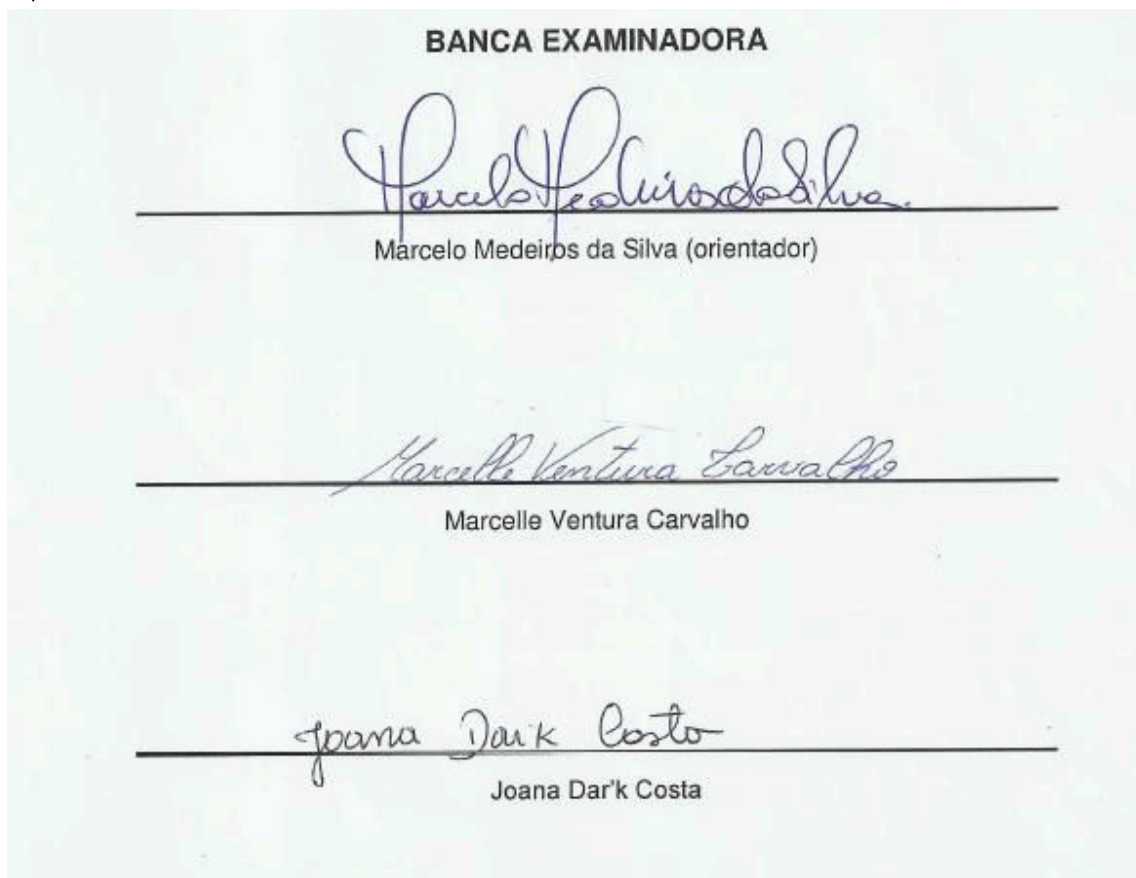 BANCA EXAMINADORA
Marcelo Medeiros da Silva.
Marcelo Medeiros da Silva (orientador)
Marcelle Ventura Carvalho
Marcelle Ventura Carvalho
Joana Dar'k Costa
Joana Dar'k Costa